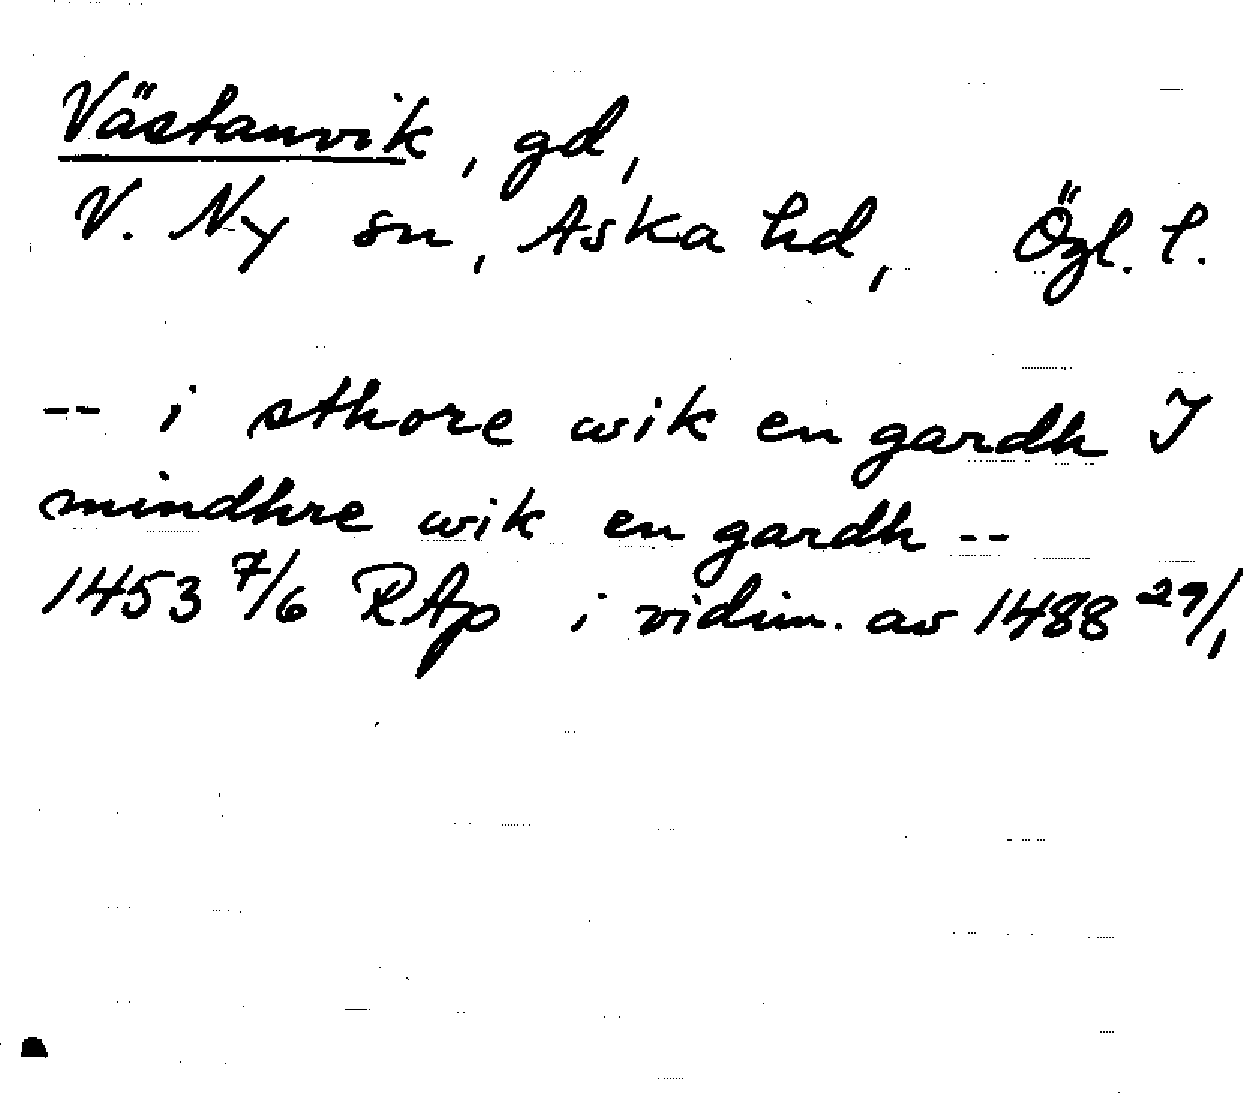 Västanvik, gd,
V. Ny sn, Aska hd, Ögl. l.
-- i sthore wik en gardh I
mindhre wik en gardh --
1453 7/6 RAp i vidim. av 1488 29/1